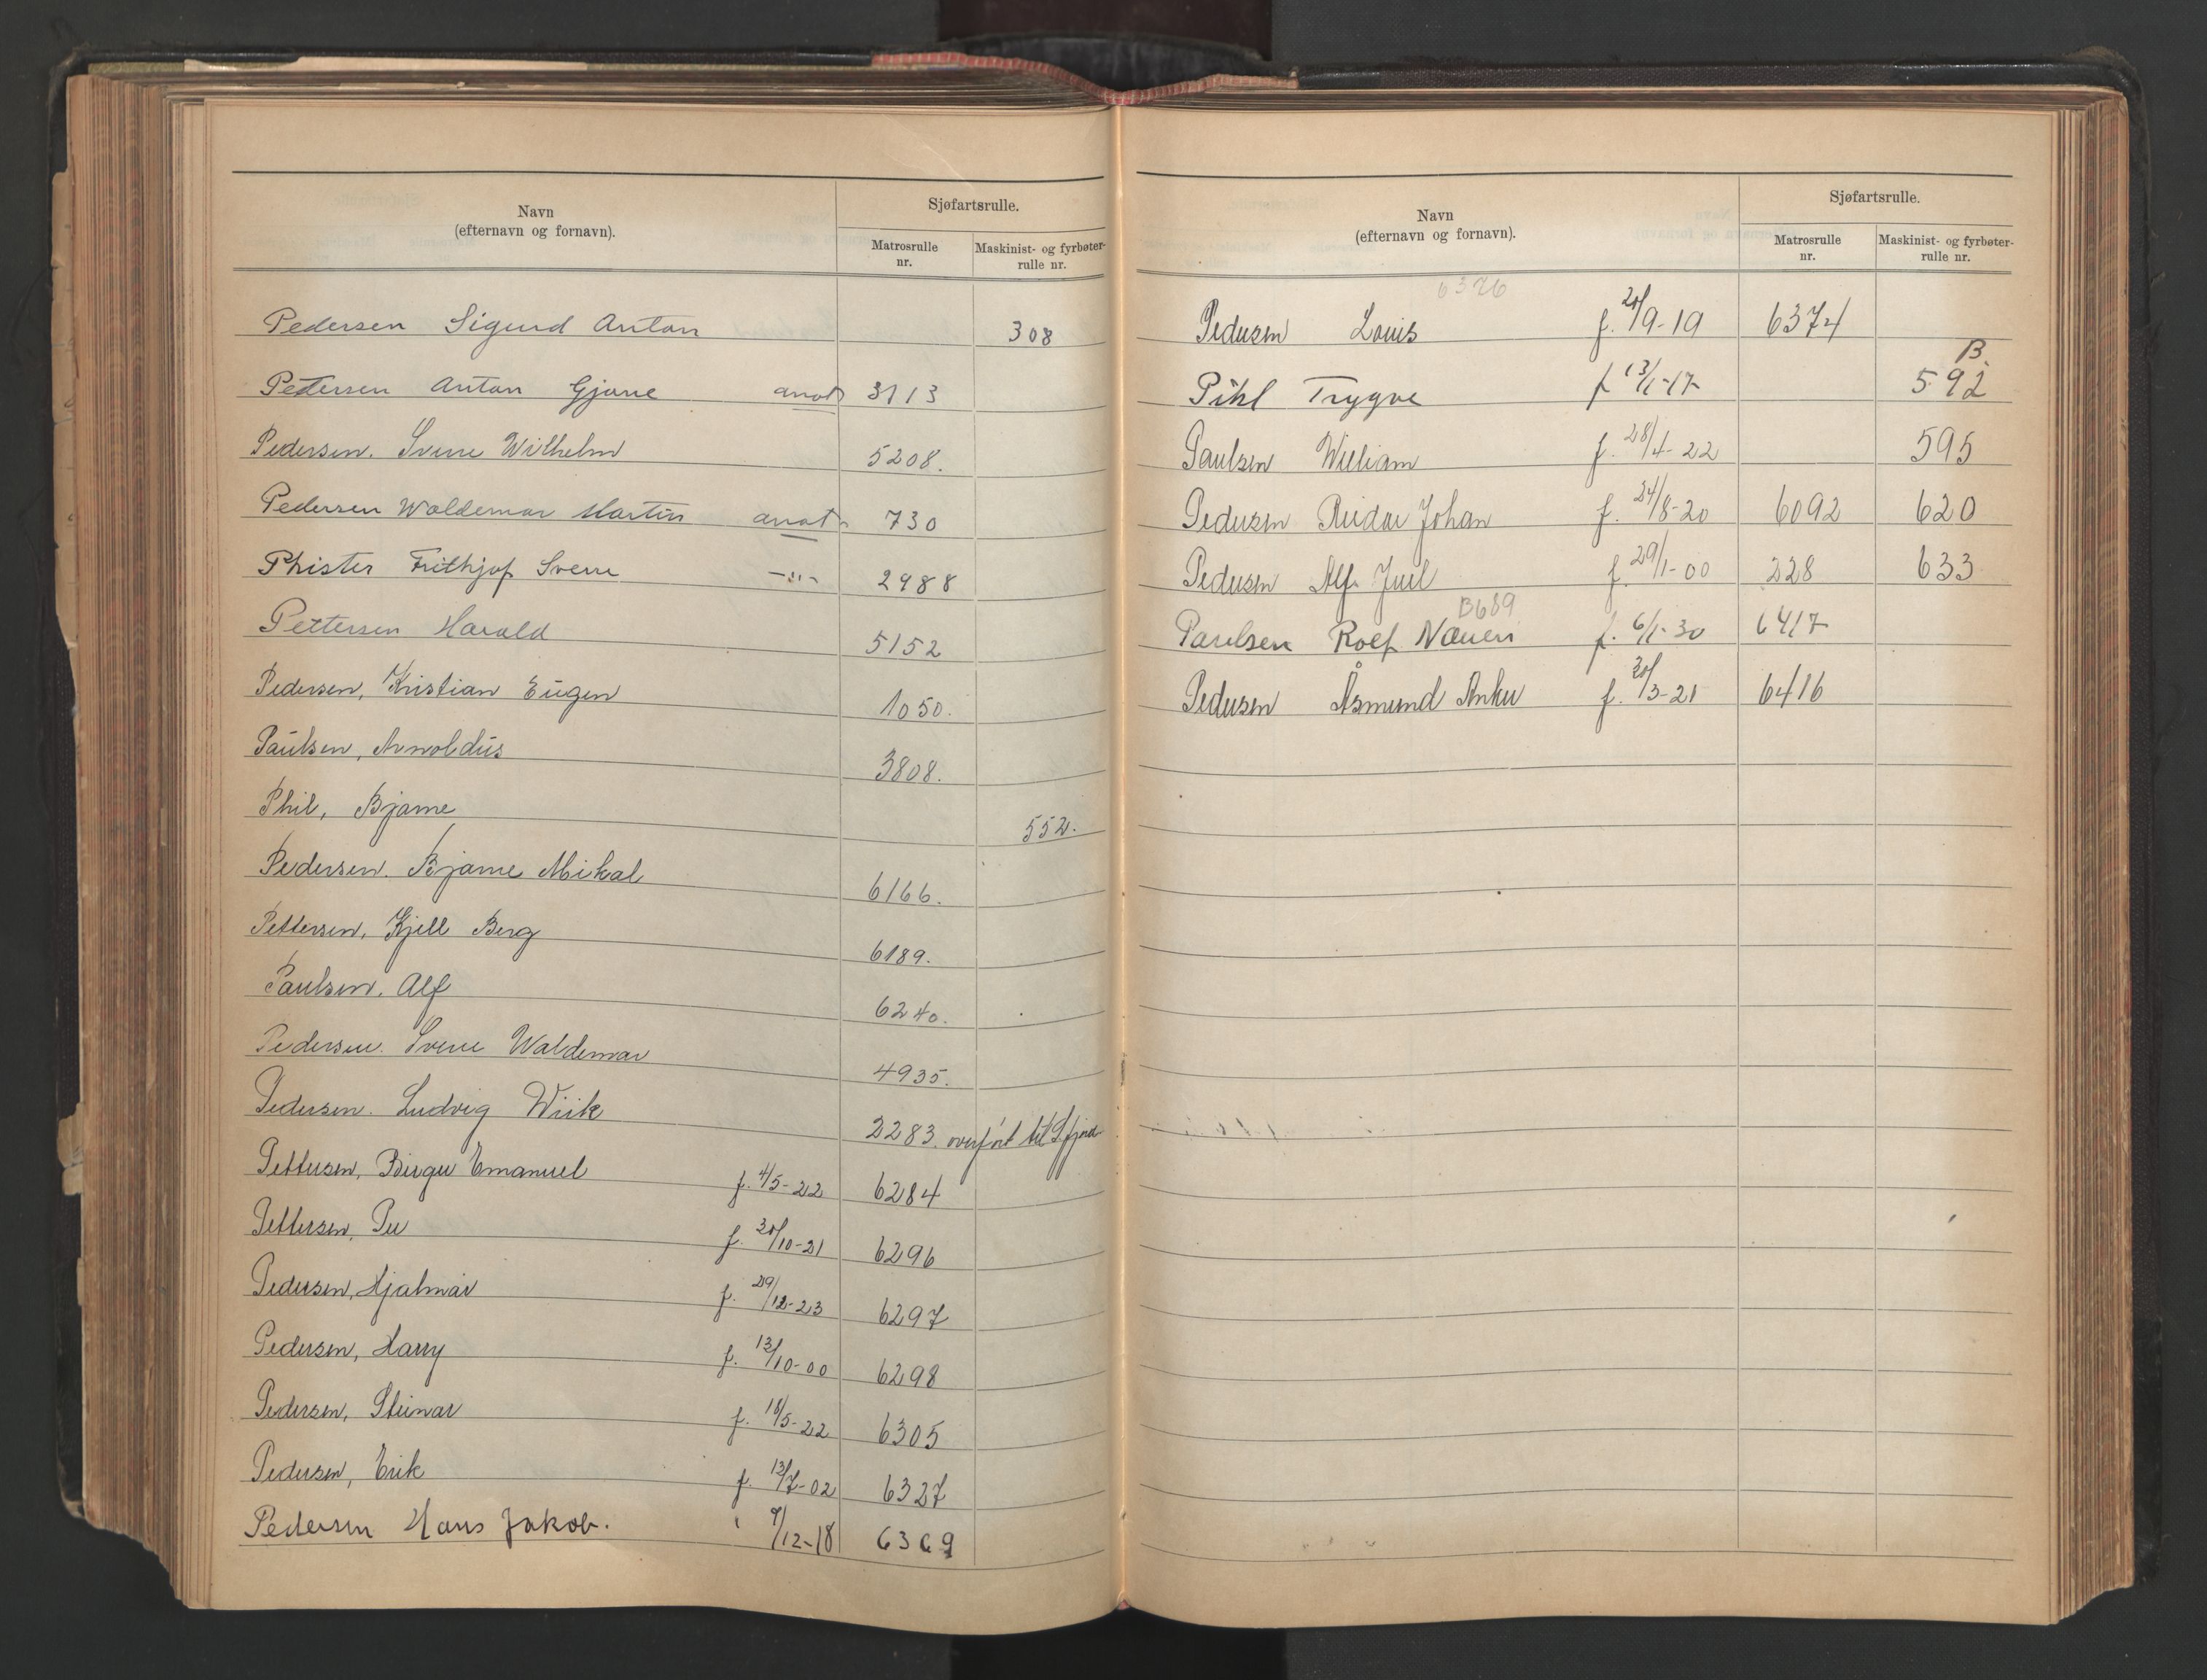 Navn
(efternavn og fornavn).
Sjøfartsrulle.
Matrosrulle
nr.
Maskinist- og fyrbøter-
rulle nr.
Pedersen Sigurd Anton 308
Petersen Anton Gjone anot 3113
Pedersen. Sverre Wilhelm 5208.
Pedersen Waldemar Martin anot 730
Phister Frithjof Sverre -"- 2988
Pettersen Harald 5152
Pedersen, Kristian Eugen 1050.
Paulsen, Arnoldus 3808.
Phil, Bjarne 552.
Pedersen. Bjarne Mikal 6166.
Pettersen, Kjell Berg 6189.
Paulsen. Alf 6240.
Pedersen. Sverre Waldemar 4935.
Pedersen. Ludvig Wiik 2283. overført til S.fjord
Pettersen, Birger Emanuel f. 4/5-22 6284
Pettersen, Per f. 20/10-21 6296
Pedersen, Hjalmar f. 29/12-23 6297
Pedersen, Harry f. 13/10-00 6298
Pedersen, Steinar f. 18/5-22 6305
Pedersen, Erik f. 13/7-02 6327
Pedersen Hans Jakob. 9/12-18 6369
Navn
(efternavn og fornavn).
Sjøfartsrulle.
Matrosrulle
nr.
Maskinist- og fyrbøter-
rulle nr.
6376
Pedersen Louis f. 21/9-19 6374
B.
Pihl Trygve f 13/1-17 592
Paulsen William f. 28/4-22 595
Pedersen Reidar Johan f. 24/8-20 6092 620
Pedersen Alf Juel f. 29/1-00 228 633
B689
Paulsen Rolf f. 6/1-30 6417
Pedersen Åsmund Anker f. 20/3-21 6416